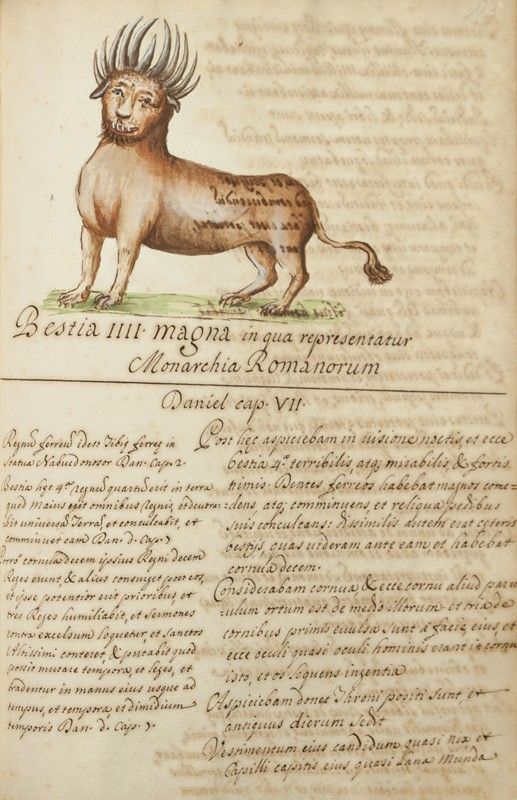 Bestia IIII magna in qua representatur
Monarchia Romanorum
Daniel cap. VII.
Regnū ferreū idest Tibię ferreę in
Statua Nabucdonosor Dan. Cap. 2.
Bestia hęc 4ª regnū quartū erit in terra
quod maius erit omnibus Regnis, et devora-
bit universā Terrā, et conculcabit, et
comminuet eam Dan. d. Cap. 7
Porrò cornua decem ipsius Regni decem
Reges erunt, & alius consurget post eos,
et ipse potentior erit prioribus, et
tres Reges humiliabit, et sermones
contra excelsum loquetur, et Sanctos
Altissimi conteret, & putabit quod
possit mutare tempora, et leges, et
tradentur in manus eius usque ad
tempus, et tempora, et dimidium
temporis Dan. d. Cap. 7.
Post hęc aspiciebam in uisione noctis, et ecce
bestia 4ª terribilis, atq; mirabilis, & fortis
nimis. Dentes ferreos habebat magnos come=
dens, atq; comminuens, et reliqua pedibus
suis conculcans: dissimilis autem erat ceteris
bestijs, quas uideram ante eam, et habebat
cornua decem.
Considerabam cornua, & ecce cornu aliud paru
ulum ortum est de medio illorum, et tria de
cornibus primis euulsa sunt à facie eius, et
ecce oculi quasi oculi hominis erant in cornu
isto, et os loquens ingentia
Aspiciebam donec Throni positi sunt et
antiquus dierum sedit
Vestimentum eius candidum quasi nix et
Capilli capitis eius quasi Lana munda